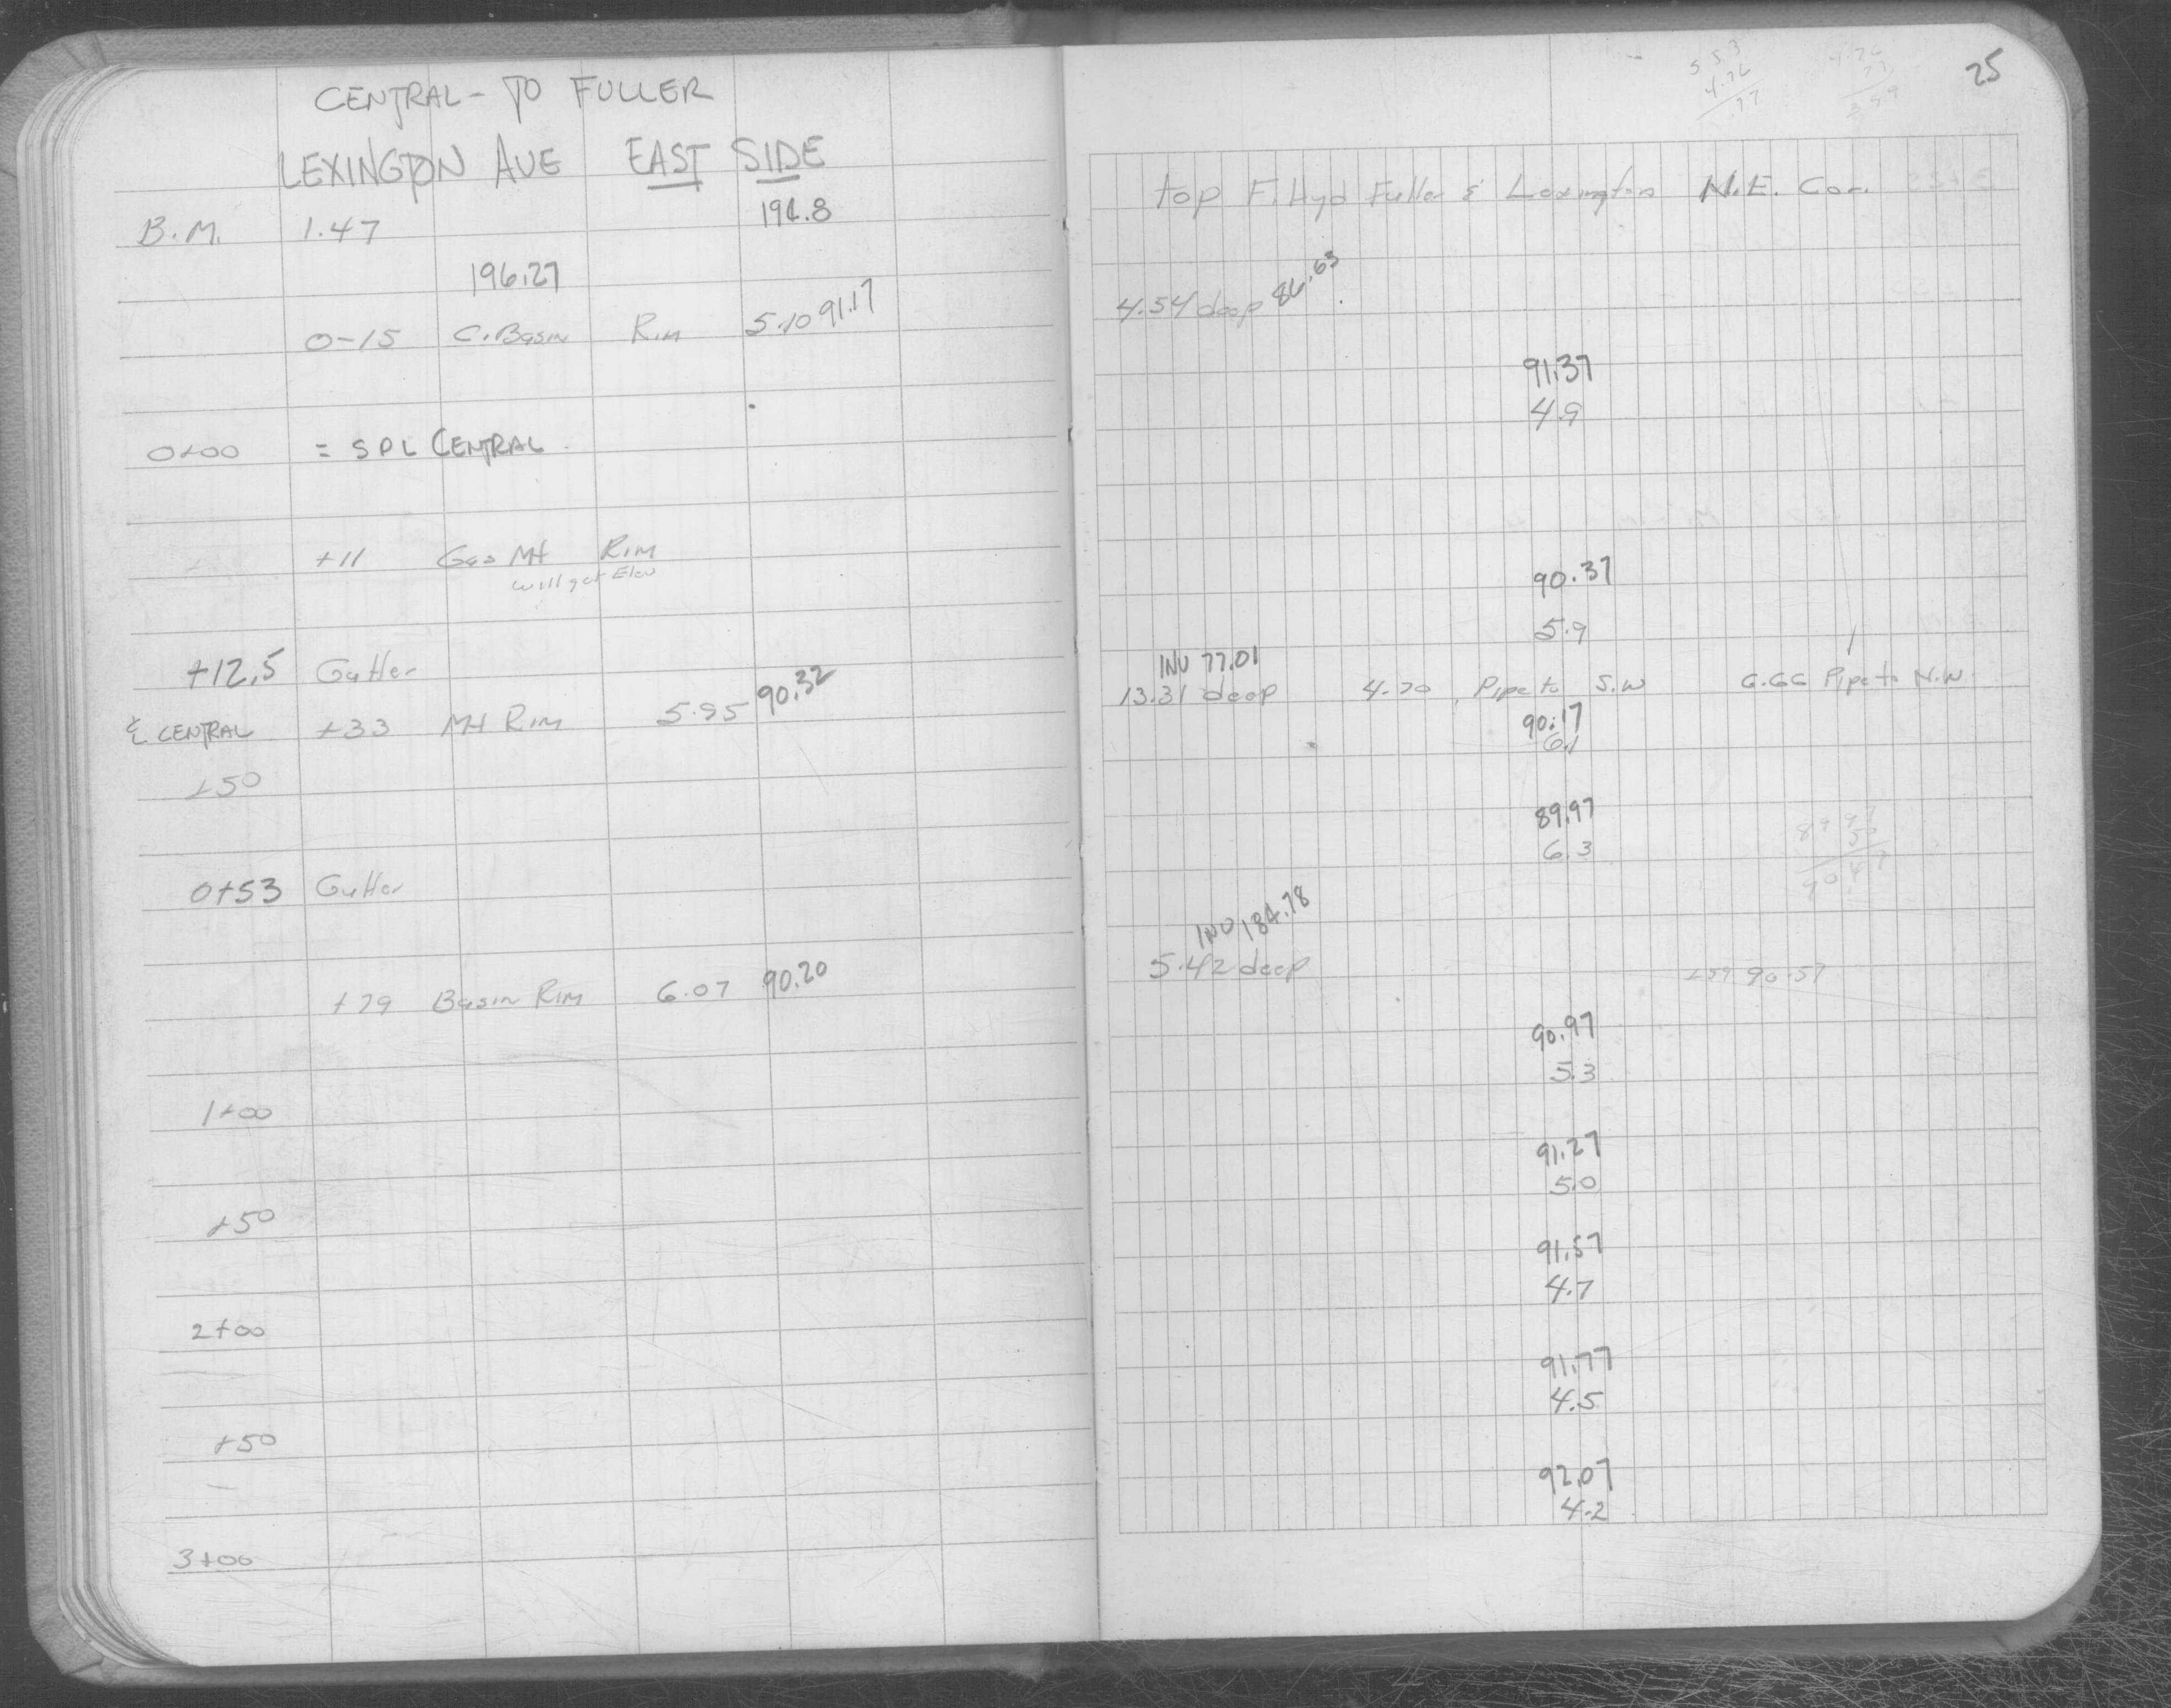 CENTRAL - TO FULLER
LEXINGTON AVE EAST SIDE
B.M. 1.47 194.8
196.27
0-15 C. Basin Rim 5.10 91.17
0+00 = SPL CENTRAL
+11 Gas MH Rim
will get Elev
+12.5 Gutter
℄ CENTRAL +33 MH Rim 5.95 90.32
+50
0+53 Gutter
+79 Basin Rim 6.07 90.20
1+00
+50
2+00
+50
3+00
25
5.53
4.76
.77
4.76
.77
3.99
top F. Hyd Fuller & Lexington N.E. Cor.
4.54 deep 86.63
91.37
4.9
90.37
5.9
INV 77.01
13.31 deep 4.70 Pipe to S.W 6.66 Pipe to N.W.
90.17
6.1
89.97
6.3
89 97
50
90 47
INV 184.78
5.42 deep
+79 90.57
90.97
5.3
91.27
5.0
91.57
4.7
91.77
4.5
92.07
4.2